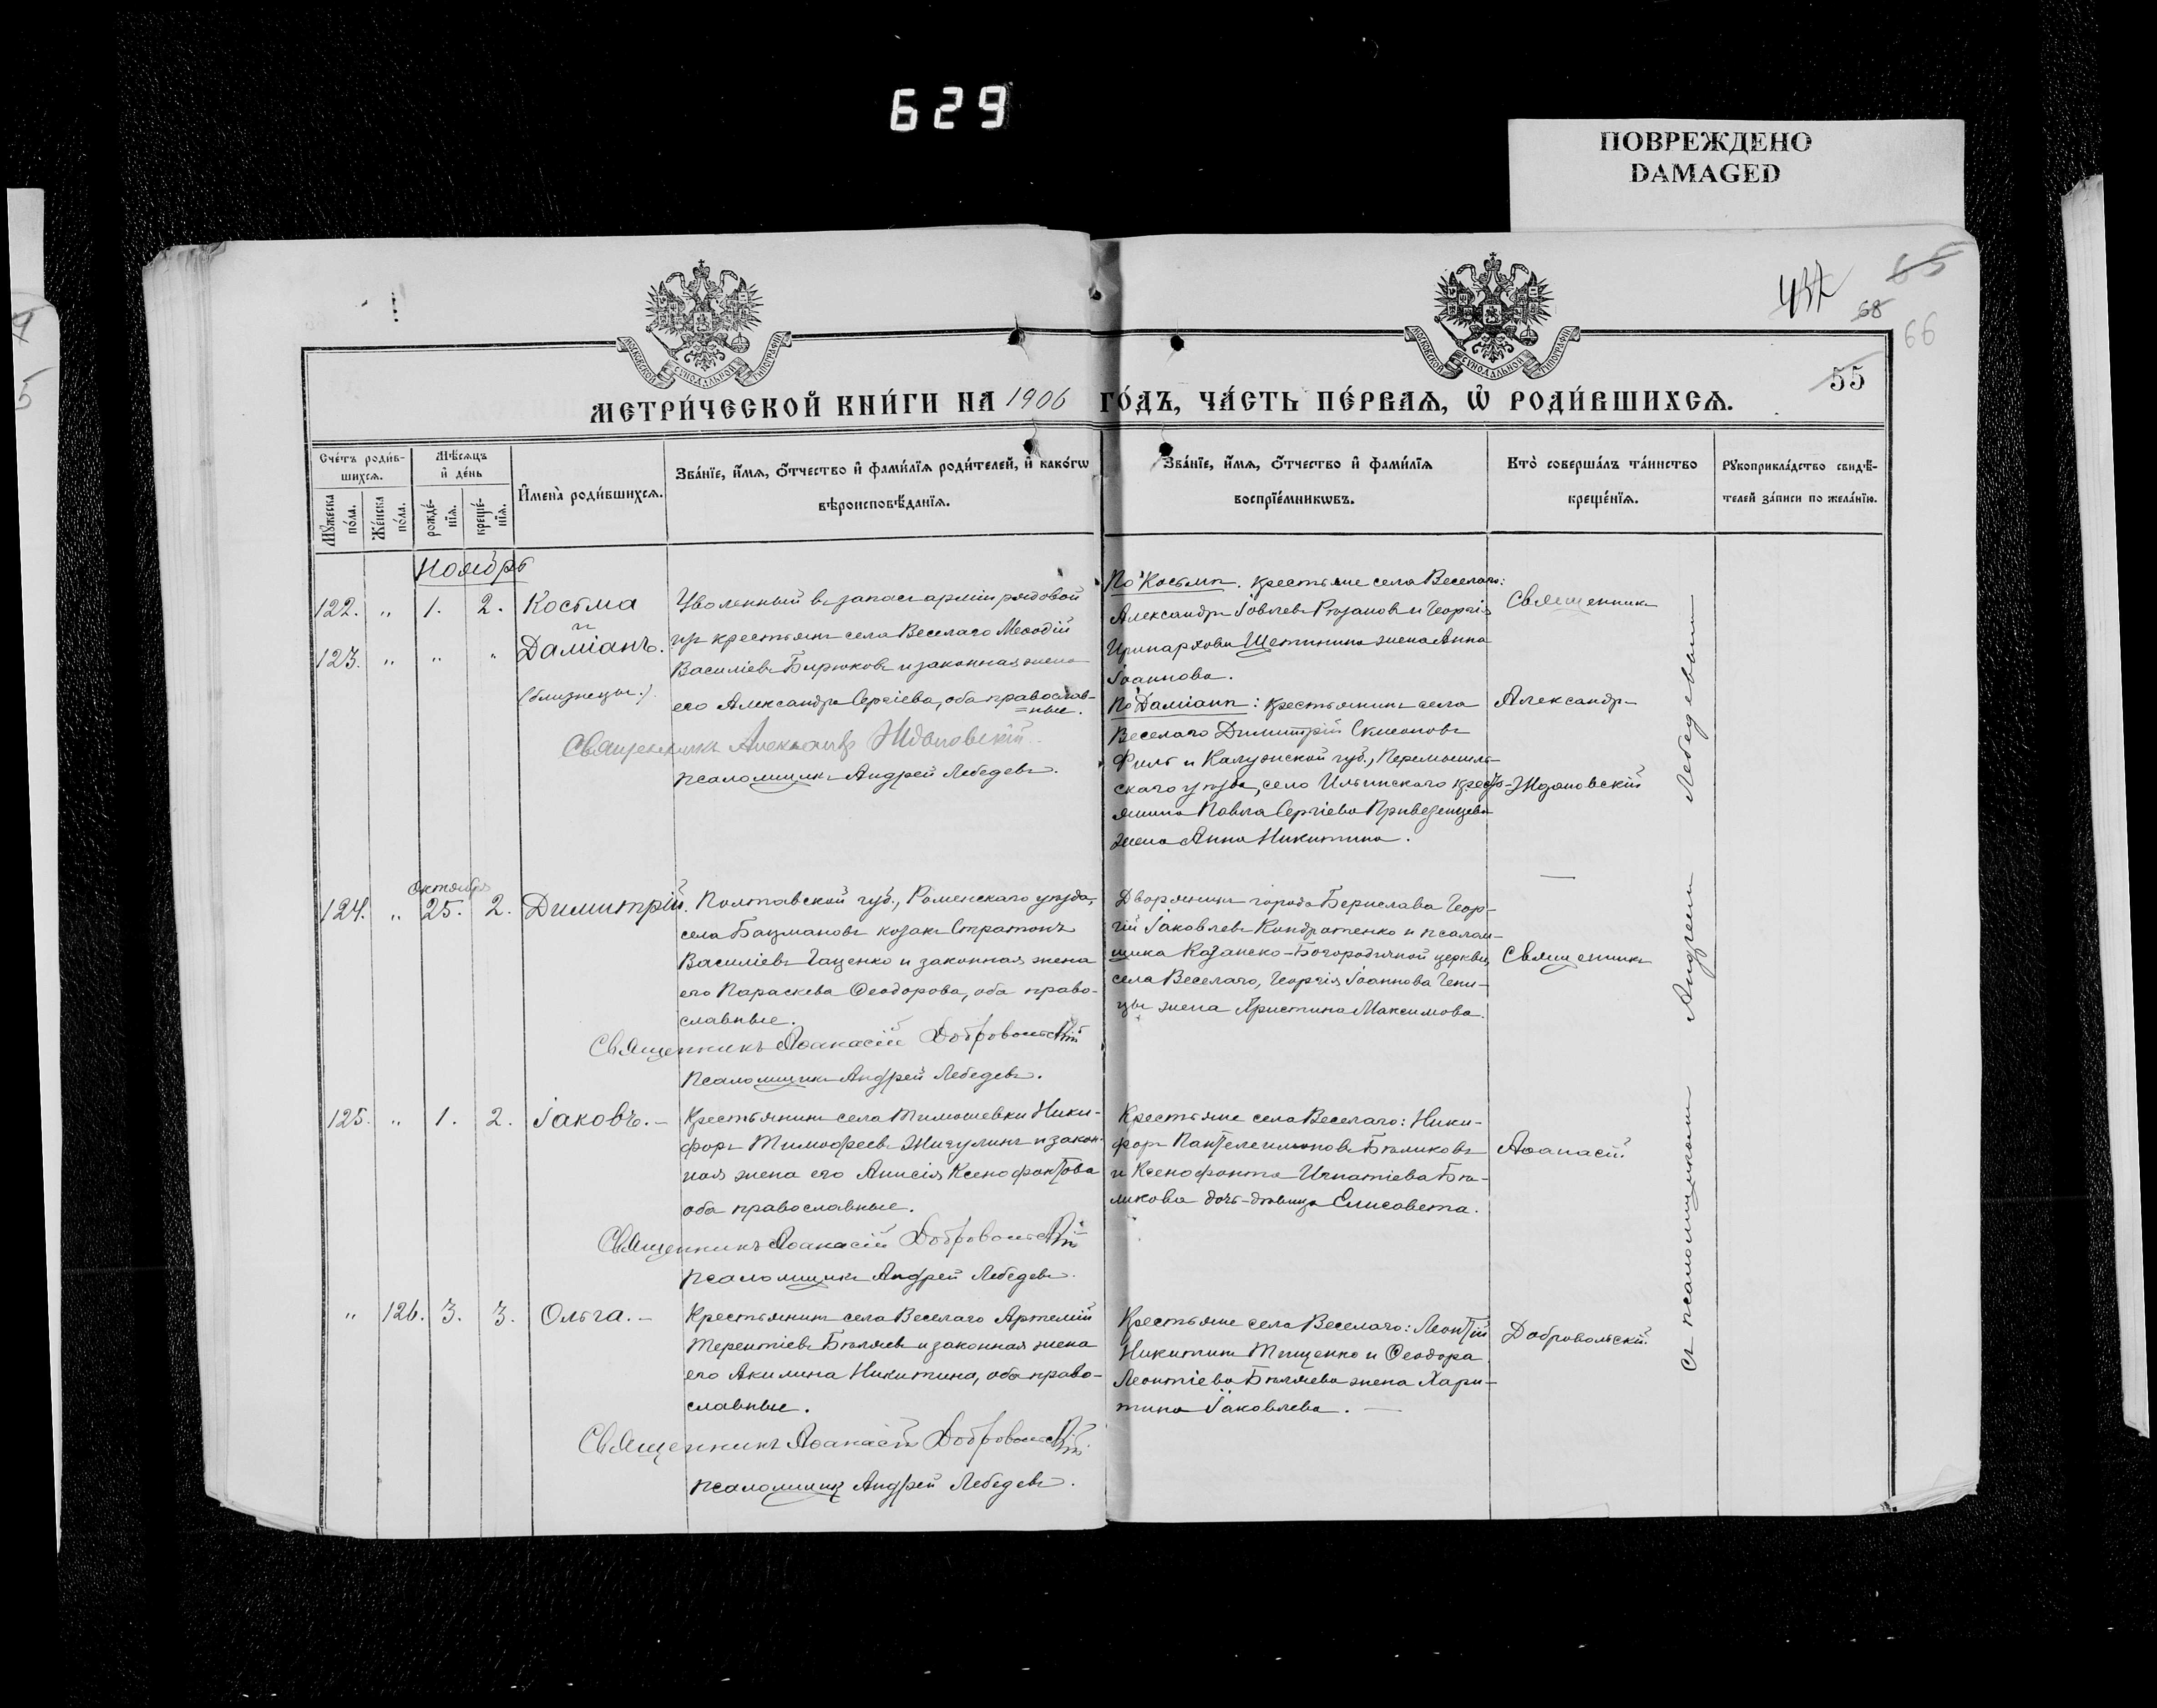 629
ПОВРЕЖДЕНО
DAMAGED
65
68
66
55
МОСКОВСКОЙ СѴНОДАЛЬНОЙ ТИПОГРАФІИ
МОСКОВСКОЙ СѴНОДАЛЬНОЙ ТИПОГРАФІИ
МЕТРИ́ЧЕСКОЙ КНИ́ГИ НА 1906 ГО́ДЪ, ЧА́СТЬ ПЕ́РВАЯ, Ѡ҆ РОДИ́ВШИХСЯ.
Сче́тъ роди́вшихся.
Мѣ́сяцъ и҆ де́нь
Мꙋ́жеска по́ла.
Же́нска по́ла.
рожде́нїѧ.
креще́нїѧ.
И҆мена̀ роди́вшихсѧ.
Зва́нїе, и҆́мѧ, ѻ҆́тчество и҆ фами́лїѧ роди́телей, и҆ како́гѡ
вѣроисповѣ́данїѧ.
Зва́нїе, и҆́мѧ, ѻ҆́тчество и҆ фами́лїѧ
воспрїе́мникѡвъ.
Кто̀ соверша́лъ та́инство
креще́нїѧ.
Рꙋкоприкла́дство свидѣ́-
телей за́писи по жела́нїю.
Ноябрь
122. „ 1. 2. Косьма
и
123. „ „ „ Даміанъ.
(близнецы.)
Уволенный въ запасъ арміи рядовой
изъ крестьянъ села Веселаго Меѳодій
Василіевъ Бирюковъ и законная жена
его Александра Сергіева, оба православ-
=ные.
Священникъ Александръ Ждановскій
псаломщикъ Андрей Лебедевъ.
По Косьмѣ. крестьяне села Веселаго:
Александръ Іовлевъ Рязановъ и Георгія
Иринархова Щетинина жена Анна
Іоаннова.
По Даміанѣ: крестьянинъ села
Веселаго Димитрій Сѵмеоновъ
Филь и Калужской губ., Перемышль-
скаго уѣзда, село Ильинскаго кресть-
янина Павла Сергіева Привезенцева
жена Анна Никитина.
Священникъ
Александръ
Ждановскій
Октября
124. „ 25. 2. Димитрій.
Полтавской губ., Роменскаго уѣзда,
села Бацмановъ козакъ Стратонъ
Василіевъ Гаценко и законная жена
его Параскева Ѳеодорова, оба право-
славные.
Священникъ Аѳанасій Добровольскій
Псаломщикъ Андрей Лебедевъ.
Дворянинъ города Берислава Геор-
гій Іаковлевъ Кондратенко и псалом-
щика Казанско-Богородичной церкви,
села Веселаго, Георгія Іоаннова Гени-
цы жена Христина Максимова.
Священникъ
125. „ 1. 2. Іаковъ.
Крестьянинъ села Тимошевки Ники-
форъ Тимоѳеевъ Жигулинъ и закон-
ная жена его Анисія Ксенофонтова
оба православные.
Священникъ Аѳанасій Добровольскій
псаломщикъ Андрей Лебедевъ.
Крестьяне села Веселаго: Ники-
форъ Пантелеимоновъ Бѣликовъ
и Ксенофонта Игнатіева Бѣ-
ликова дочь-дѣвица Елисавета.
Аѳанасій
„ 126. 3. 3. Ольга.
Крестьянинъ села Веселаго Артемій
Терентіевъ Бѣляевъ и законная жена
его Акилина Никитина, оба право-
славные.
Священникъ Аѳанасій Добровольскій
псаломщикъ Андрей Лебедевъ.
Крестьяне села Веселаго: Леонтій
Никитинъ Тищенко и Ѳеодора
Леонтіева Бѣляева жена Хари-
тина Іаковлева.
Добровольскій.
съ псаломщикомъ Андреем Лебедевымъ